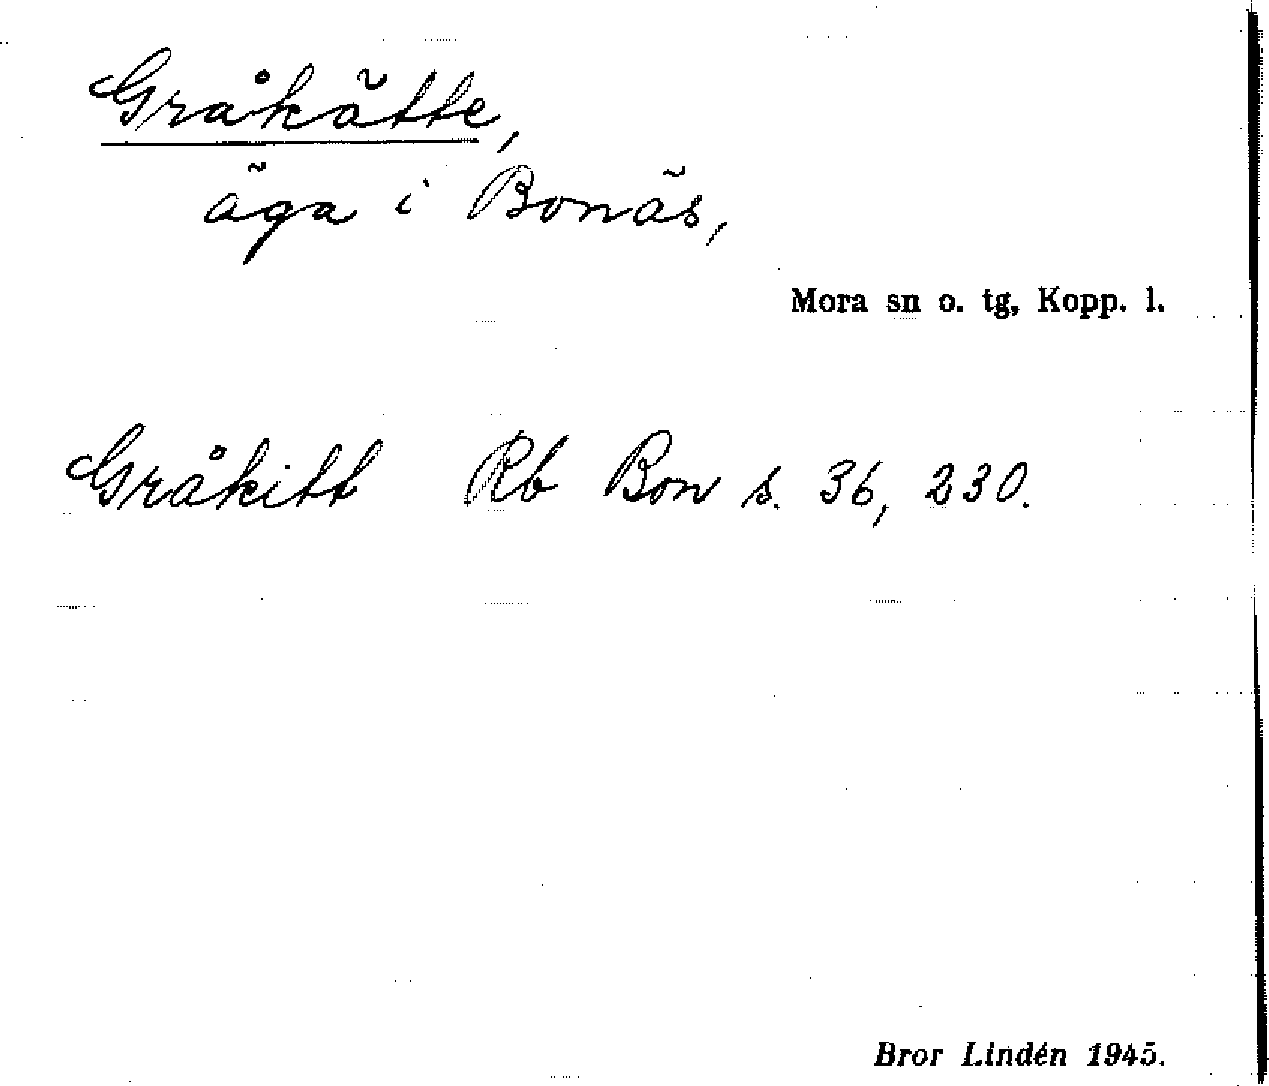 Gråkätte,
äga i Bonäs,
Mora sn o. tg, Kopp. l.
Gråkitt Rb Bon s. 36, 230.
Bror Lindén 1945.